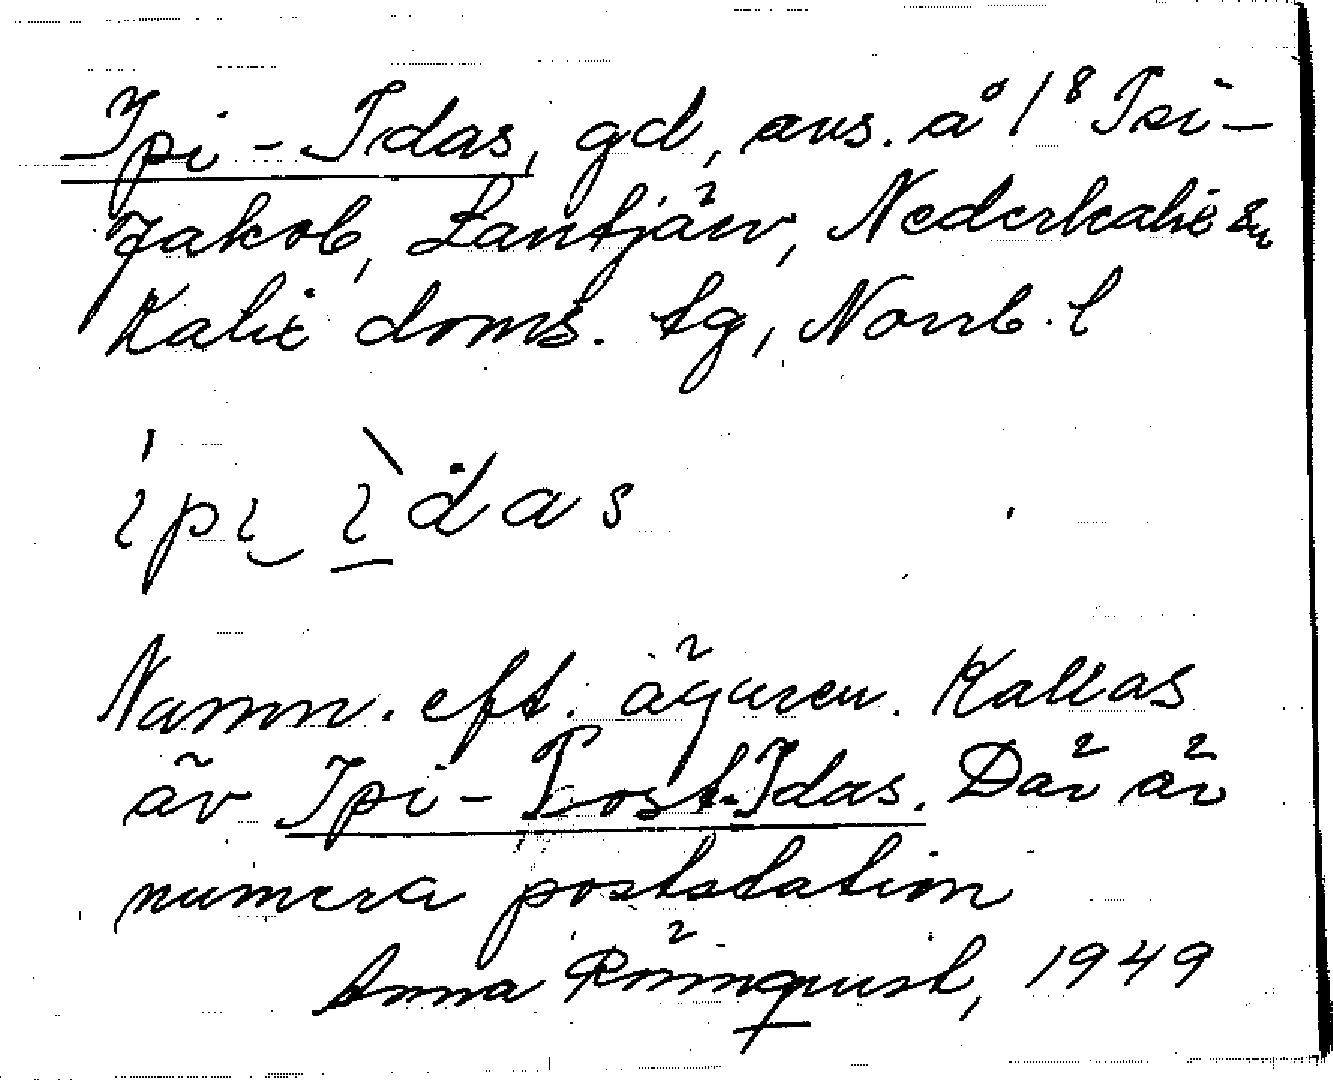 Ipi-Idas, gd, avs. å 1/8 Isi-
Jakob, Lantjärv, Nederkalix sn
Kalix doms. tg, Norrb. l
ipi idas
Namn. eft. ägaren. Kallas
äv Ipi-Post-Idas. Där är
numera poststation
Anna Rönnqvist, 1949